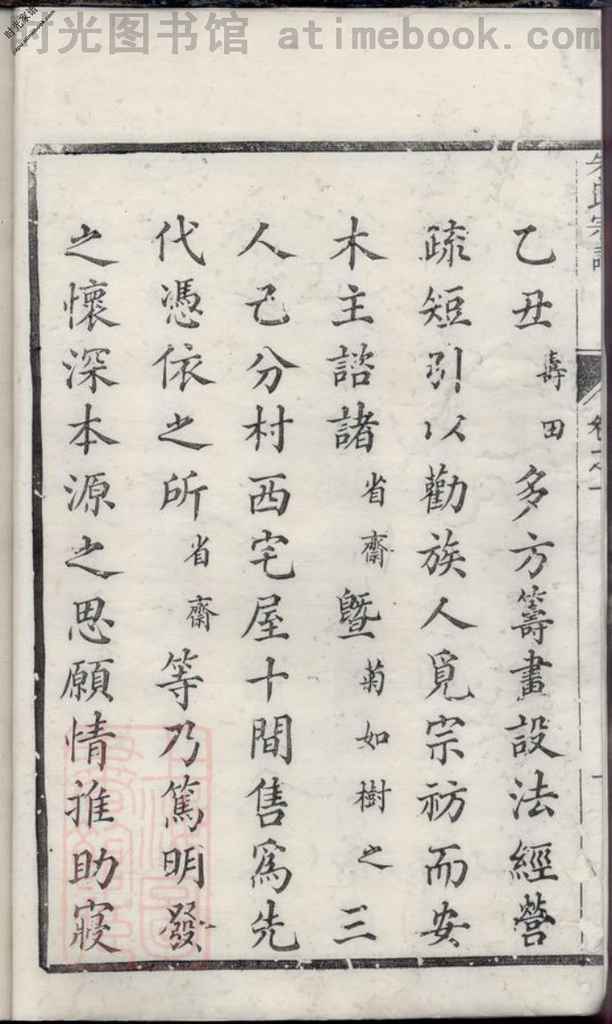 时光图书馆 atimebook.com
乙丑壽田多方籌畫設法經營
疏短引以勸族人覓宗祊而安
木主諮諸省齋暨菊如樹之三
人己分村西宅屋十間售爲先
代憑依之所省齋等乃篤明發
之懷深本源之思願情推助寢